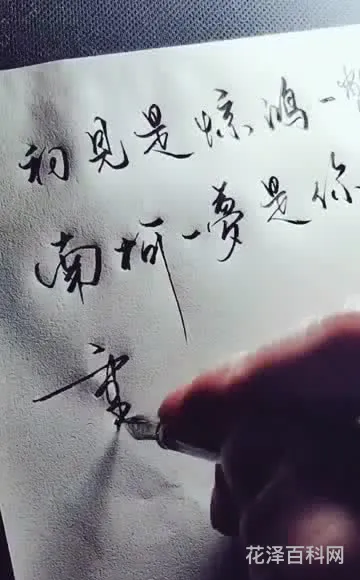 初見是惊鸿一
南柯一夢是你
花泽百科网